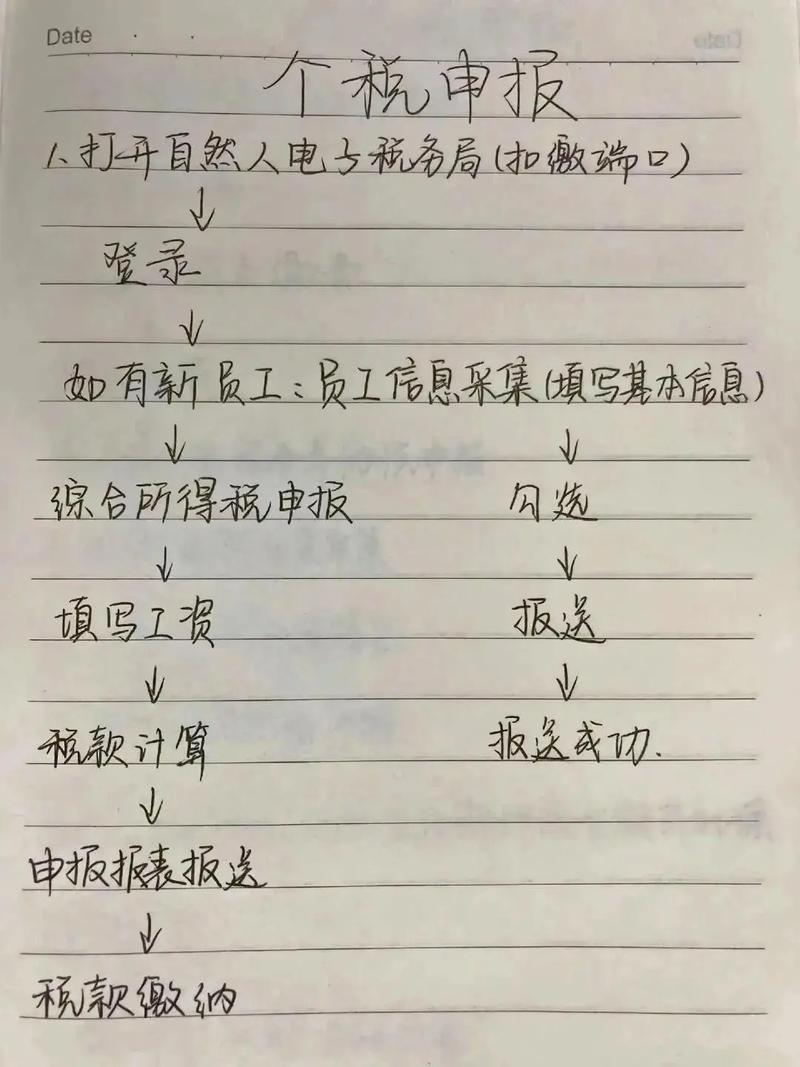 Date
个税申报
1、打开自然人电子税务局(扣缴端口)
↓
登录
↓
如有新员工:员工信息采集(填写基本信息)
↓ ↓
综合所得税申报 勾选
↓ ↓
填写工资 报送
↓ ↓
税款计算 报送成功.
↓
申报报表报送
↓
税款缴纳